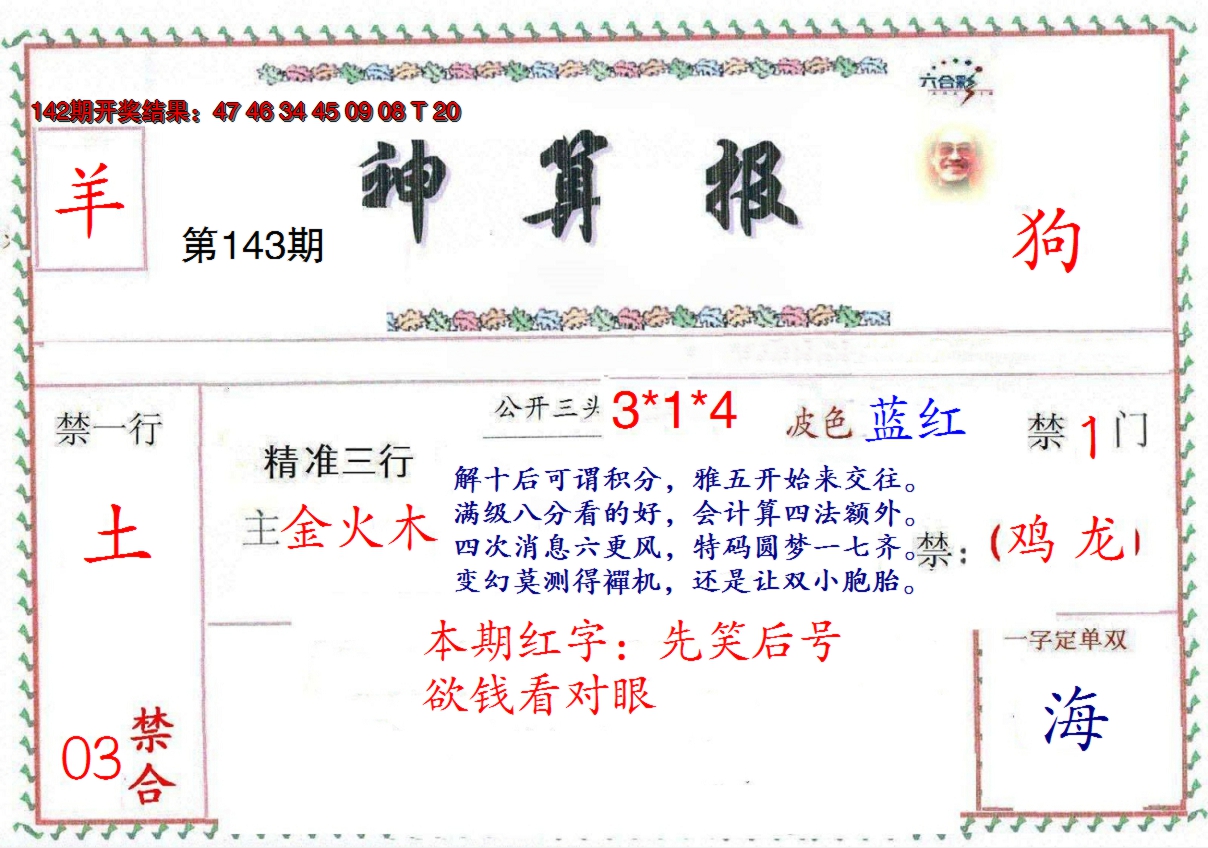 六合彩
142期开奖结果：47 46 34 45 09 08 T 20
神算报
羊
第143期
狗
公开三头 3*1*4
波色 蓝红
禁1门
禁一行
土
精准三行
主金火木
解十后可谓积分，雅五开始来交往。
满级八分看的好，会计算四法额外。
四次消息六更风，特码圆梦一七齐。
变幻莫测得禪机，还是让双小胞胎。
禁：（鸡 龙）
本期红字：先笑后号
欲钱看对眼
一字定单双
海
03禁合